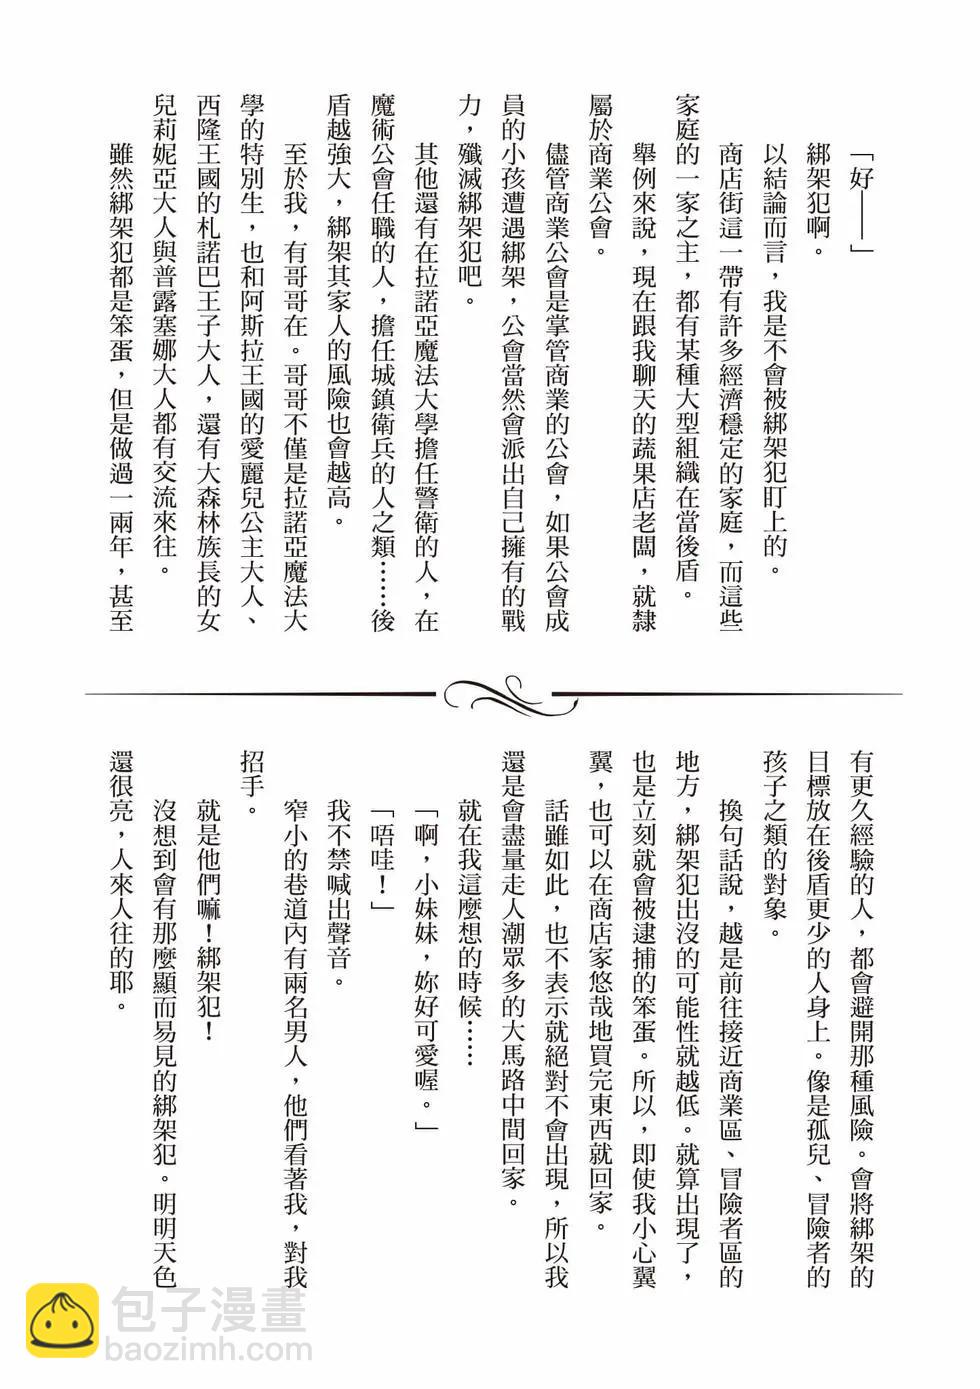 「好——」
綁架犯啊。
以結論而言，我是不會被綁架犯盯上的。
商店街這一帶有許多經濟穩定的家庭，而這些
家庭的一家之主，都有某種大型組織在當後盾。
舉例來說，現在跟我聊天的蔬果店老闆，就隸
屬於商業公會。
儘管商業公會是掌管商業的公會，如果公會成
員的小孩遭遇綁架，公會當然會派出自己擁有的戰
力，殲滅綁架犯吧。
其他還有在拉諾亞魔法大學擔任警衛的人，在
魔術公會任職的人，擔任城鎮衛兵的人之類……後
盾越強大，綁架其家人的風險也會越高。
至於我，有哥哥在。哥哥不僅是拉諾亞魔法大
學的特別生，也和阿斯拉王國的愛麗兒公主大人、
西隆王國的札諾巴王子大人，還有大森林族長的女
兒莉妮亞大人與普露塞娜大人都有交流來往。
雖然綁架犯都是笨蛋，但是做過一兩年，甚至
有更久經驗的人，都會避開那種風險。會將綁架的
目標放在後盾更少的人身上。像是孤兒、冒險者的
孩子之類的對象。
換句話說，越是前往接近商業區、冒險者區的
地方，綁架犯出沒的可能性就越低。就算出現了，
也是立刻就會被逮捕的笨蛋。所以，即使我小心翼
翼，也可以在商店家悠哉地買完東西就回家。
話雖如此，也不表示就絕對不會出現，所以我
還是會盡量走人潮眾多的大馬路中間回家。
就在我這麼想的時候……
「啊，小妹妹，妳好可愛喔。」
「唔哇！」
我不禁喊出聲音。
窄小的巷道內有兩名男人，他們看著我，對我
招手。
就是他們嘛！綁架犯！
沒想到會有那麼顯而易見的綁架犯。明明天色
還很亮，人來人往的耶。
包子漫畫
baozimh.com